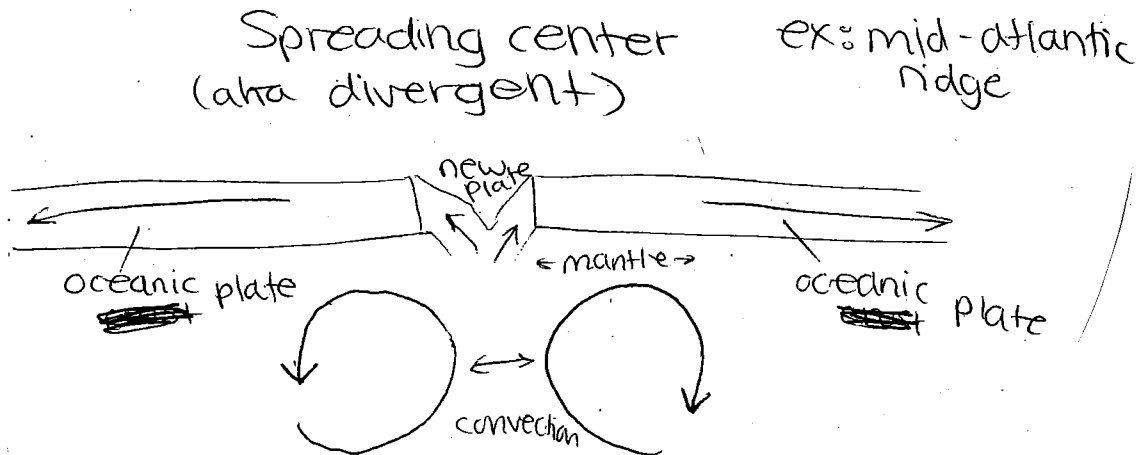 Spreading center
(aka divergent)
ex: mid-atlantic
ridge
new
plate
oceanic plate
← mantle →
oceanic
plate
convection